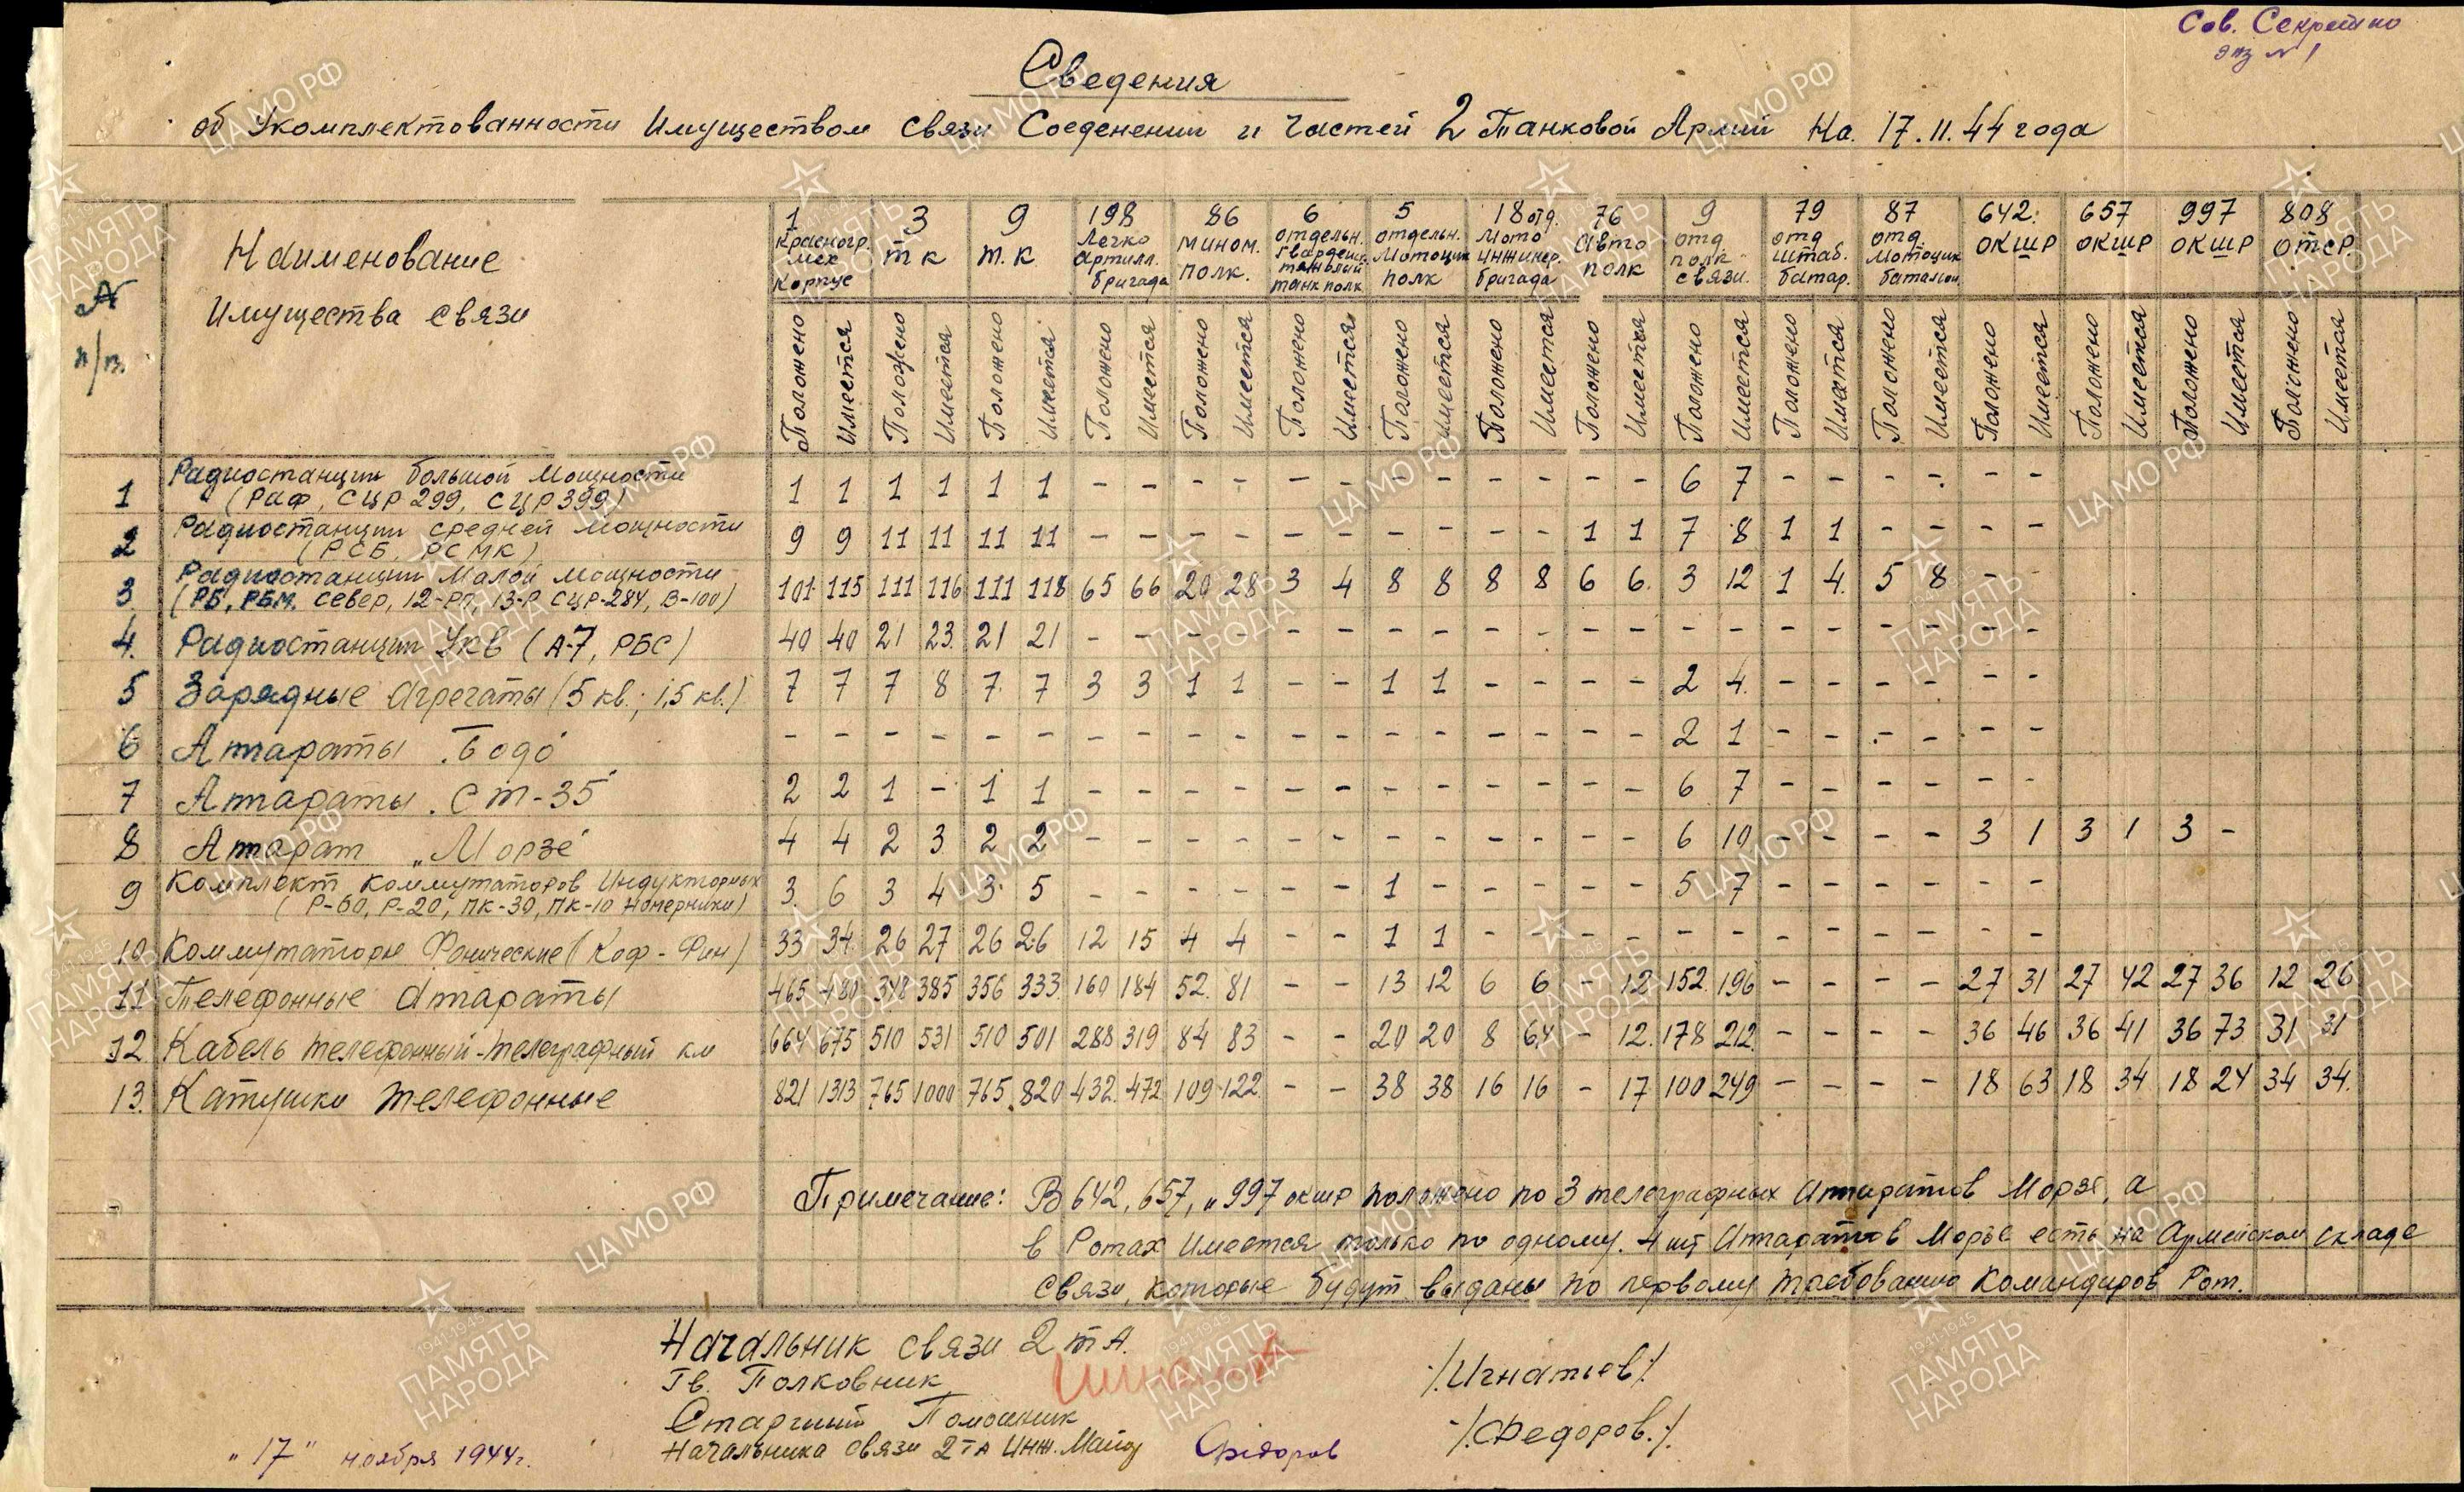 Сов. Секретно
экз № 1
Сведения
об Укомплектованности Имуществом связи Соеденении и частей 2 Танковой Армии На 17.11.44 года
№ п/п.
Наименование Имущества связи
1 Красногр. мех Корпус
3 тк
9 т.к
198 Легко Артилл. бригада
86 мином. полк.
6 отдельн. Гвардейск. тяжолый танк полк
5 отдельн. Мотоцик полк
18 отд. Мото инжинер. бригада
76 Авто полк
9 отд. полк связи.
79 отд штаб. батар.
87 отд. мотоцик баталион.
642. ОКШР
657 ОКШР
997 ОКШР
808 ОТСР.
Положено Имеется Положено Имеется Положено Имеется Положено Имеется Положено Имеется Положено Имеется Положено Имеется Положено Имеется Положено Имеется Положено Имеется Положено Имеется Положено Имеется Положено Имеется Положено Имеется Положено Имеется Положено Имеется
1 Радиостанции большой Мощности (РАФ, СЦР 299, СЦР 399) 1 1 1 1 1 1 - - - - - - - - - - - - 6 7 - - - - - -
2 Радиостанции средней мощности (РСБ, РСМК) 9 9 11 11 11 11 - - - - - - - - - - 1 1 7 8 1 1 - - - -
3 Радиостанции Малой мощности (РБ, РБМ, Север, 12-РП, 13-Р СЦР-284, В-100) 101 115 111 116 111 118 65 66 20 28 3 4 8 8 8 8 6 6. 3 12 1 4. 5 8 - -
4. Радиостанции УКВ (А-7, РБС) 40 40 21 23. 21 21 - - - - - - - - - - - - - - - - - - - -
5 Зарядные Агрегаты (5 кв.; 1,5 кв.) 7 7 7 8 7. 7 3 3 1 1 - - 1 1 - - - - 2 4. - - - - - -
6 Аппараты „Бодо" - - - - - - - - - - - - - - - - - - 2 1 - - - - - -
7 Аппараты „СТ-35" 2 2 1 - 1 1 - - - - - - - - - - - - 6 7 - - - - - -
8 Аппарат „Морзе" 4 4 2 3 2 2 - - - - - - - - - - - - 6 10 - - - - 3 1 3 1 3 -
9 Комплект Коммутаторов Индукторных (Р-60, Р-20, ПК-30, ПК-10 номерники) 3. 6 3 4 3. 5 - - - - - - 1 - - - - - 5 7 - - - - - -
10 Коммутаторы Фонические (Коф - Фин) 33 34. 26 27 26 26 12 15 4 4 - - 1 1 - - - - - - - - - - - -
11 Телефонные Аппараты 465 480 348 385 356 333. 160 184 52. 81 - - 13 12 6 6 - 12 152. 196 - - - - 27 31 27 42 27 36 12 26
12 Кабель телефонный-телеграфный км 664 675 510 531 510 501 288 319 84 83 - - 20 20 8 6,4 - 12. 178 212. - - - - 36 46 36 41 36 73 31 31
13. Катушки телефонные 821 1313 765 1000 765. 820 432. 472 109 122. - - 38 38 16 16 - 17 100 249 - - - - 18 63 18 34 18 24 34 34.
Примечание: В 642, 657, и 997 окшр положено по 3 телеграфных Аппаратов Морзе, а
в Ротах имеется только по одному. 4 шт Аппаратов Морзе есть на Армейском складе
связи, которые будут выданы по первому требованию Командиров Рот.
Начальник связи 2 тА.
Гв. Полковник /.Игнатьев/.
Старший Помошник
Начальника связи 2 ТА Инж. Майор Федоров /.Федоров./.
„17" ноября 1944г.
ЦАМО РФ
ПАМЯТЬ НАРОДА
1941-1945